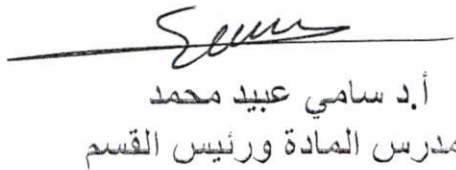 أ.د سامي عبيد محمد
مدرس المادة ورئيس القسم